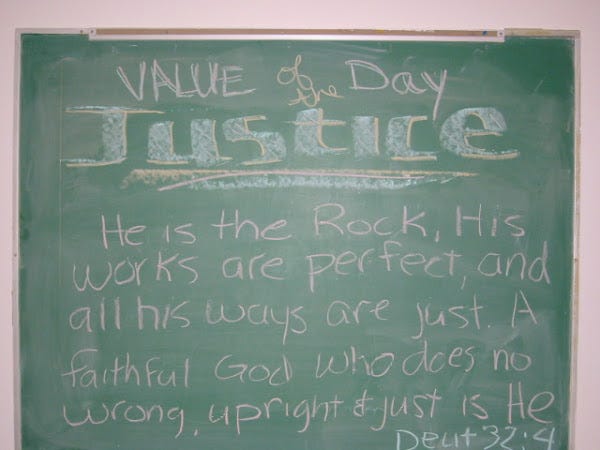 VALUE of the Day
Justice
He is the Rock, His
works are perfect, and
all his ways are just. A
faithful God who does no
wrong, upright & just is He
Deut 32:4